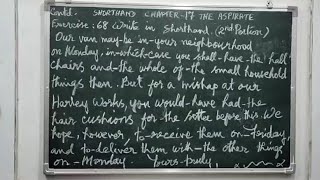 Contd. SHORTHAND CHAPTER-17 THE ASPIRATE
Exercise:68 Write in Shorthand. (2nd Portion)
Our van may-be in-your neighbourhood
on-Monday, in-which-case you-shall-have-the hall
chairs and-the whole-of-the small household
things then. But for-a mishap at our
Harley Works, you would-have had-the
hair cushions for-the settee before this. We
hope, however, to-receive them on-Friday,
and to-deliver them with-the other things
on-Monday. Yours-truly,